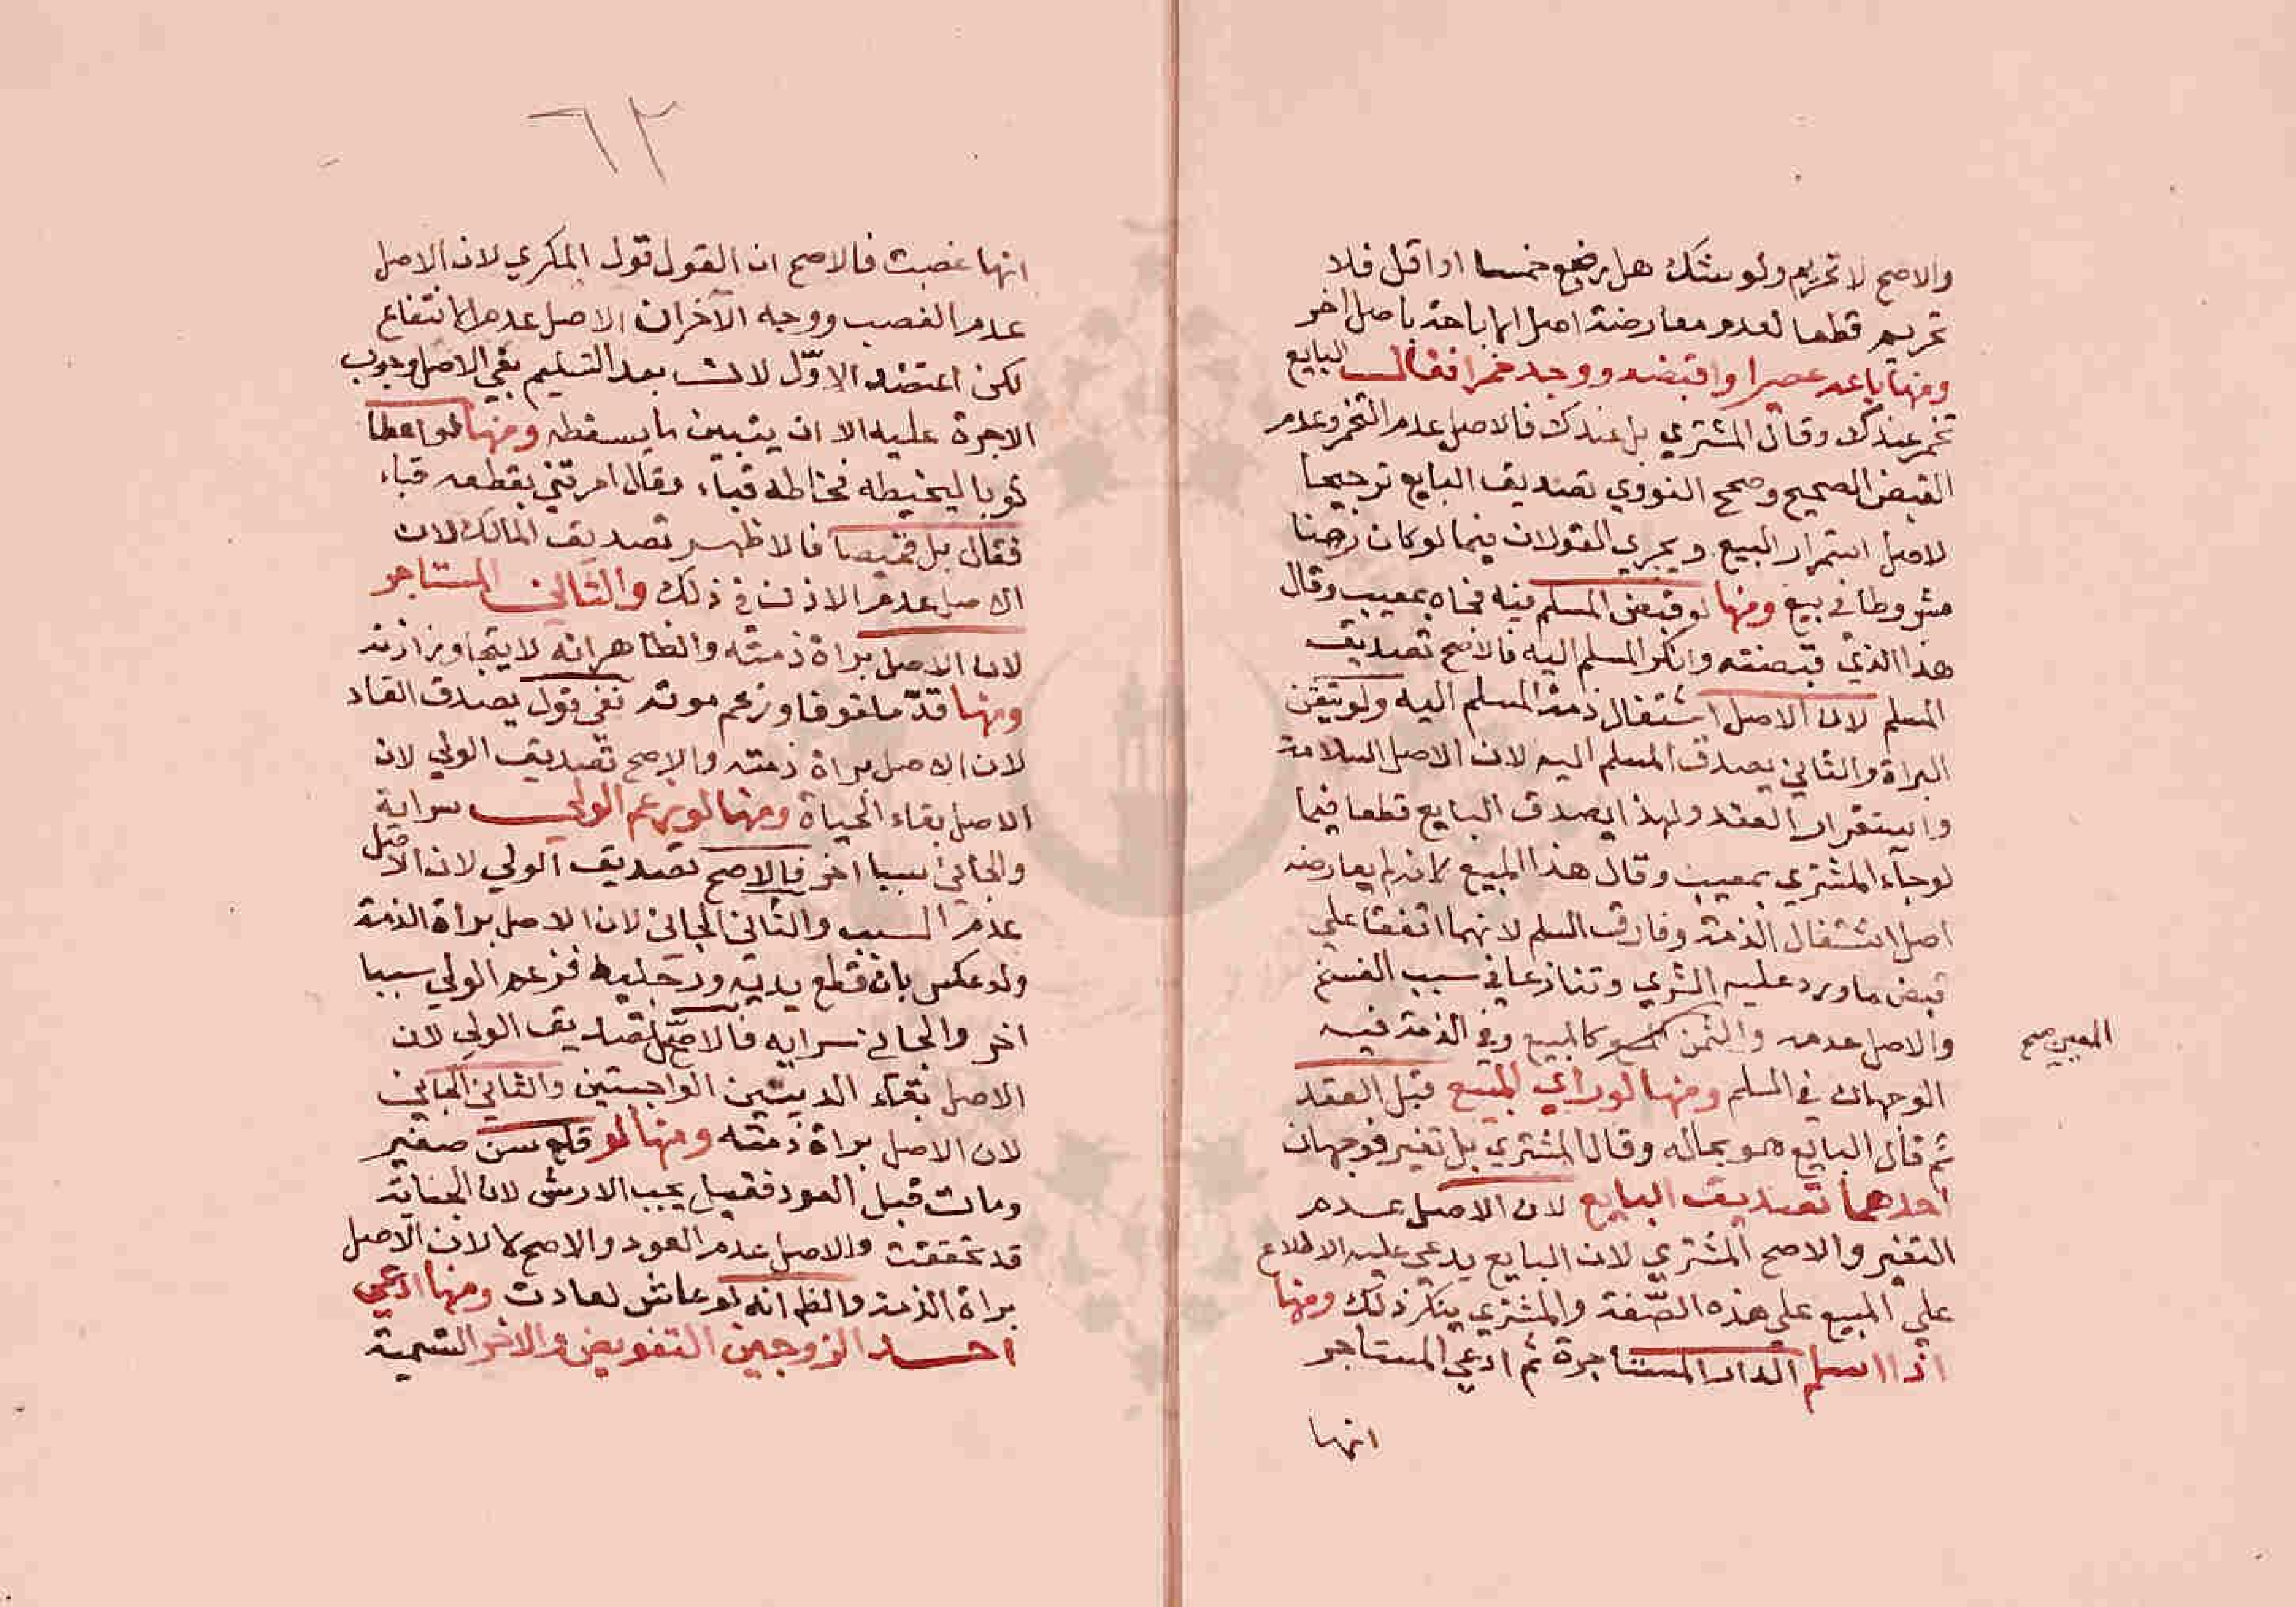 والاصح لا تحريم ولو شك هل رضع خمسا او اقل فلا
تحريم قطعا لعدم معارضة اصل الاباحة باصل اخر
ومنها باعه عصيرا واقبضه ووجد خمرا فقال البايع
تخمر عندك وقال المشتري بل عندك فالاصل عدم التخمر وعدم
القبض الصحيح وصحح النووي تصديق البايع ترجيحا
لاصل استمرار البيع ويجري القولان فيما لو كان رهنا
مشروطا في بيع ومنها لو قبض المسلم فيه فجاه بمعيب وقال
هذا الذي قبضته وانكر المسلم اليه فالاصح تصديق
المسلم لان الاصل اشتغال ذمة المسلم اليه ولو تيقن
البراة والثاني يصدق المسلم اليه لان الاصل السلامة
واستقرار العقد ولهذا يصدق البايع قطعا فيما
لو جاء المشتري بمعيب وقال هذا المبيع لانه لم يعارضه
اصل اشتغال الذمة وفارق السلم لانهما اتفقا علي
قبض ما ورد عليه الشري وتنازعا في سبب الفسخ
والاصل عدمه والثمن كالمبيع وفي الذمة فيه
المعين صح
الوجهان في السلم ومنها لو راي المبيع قبل العقد
ثم قال البايع هو بحاله وقال المشتري بل تغير فوجهان
احدهما تصديق البايع لان الاصل عدم
التغير والاصح المشتري لان البايع يدعي عليه الاطلاع
علي المبيع علي هذه الصفة والمشتري ينكر ذلك ومنها
اذا اسلم الدار المستاجرة ثم ادعي المستاجر
انها
٦٢
انها غصبت فالاصح ان القول قول المكري لان الاصل
عدم الغصب ووجه الآخر ان الاصل عدم الانتفاع
لكن اعتضد الاوّل لانه بعد التسليم بقي الاصل وجوب
الاجرة عليه الا ان يتبين ما يسقطه ومنها لو اعطا
ثوبا ليخيطه فخاطه قباء وقال امرتني بقطعه قباء
فقال بل قميصا فالاظهر تصديق المالك لان
الاصل عدم الاذن في ذلك والثاني المستاجر
لان الاصل براة ذمته والظاهر انه لا يتجاوز اذنه
ومنها قدّ ملفوفا وزعم موته ففي قول يصدق القاد
لان الاصل براة ذمته والاصح تصديق الولي لان
الاصل بقاء الحياة ومنها لو زعم الولي سراية
والجاني سببا اخر فالاصح تصديق الولي لان الاصل
عدم السبب والثاني الجاني لان الاصل براة الذمة
ولو عكس بان قطع يديه ورجليه فزعم الولي سببا
اخر والجاني سراية فالاصح تصديق الولي لان
الاصل بقاء الديتين الواجبتين والثاني الجاني
لان الاصل براة ذمته ومنها لو قلع سن صغير
ومات قبل العود فقيل يجب الارش لان الجناية
قد تحققت والاصل عدم العود والاصح لا لان الاصل
براة الذمة والظم انه لو عاش لعادت ومنها ادعي
احد الزوجين التفويض والاخر التسمية